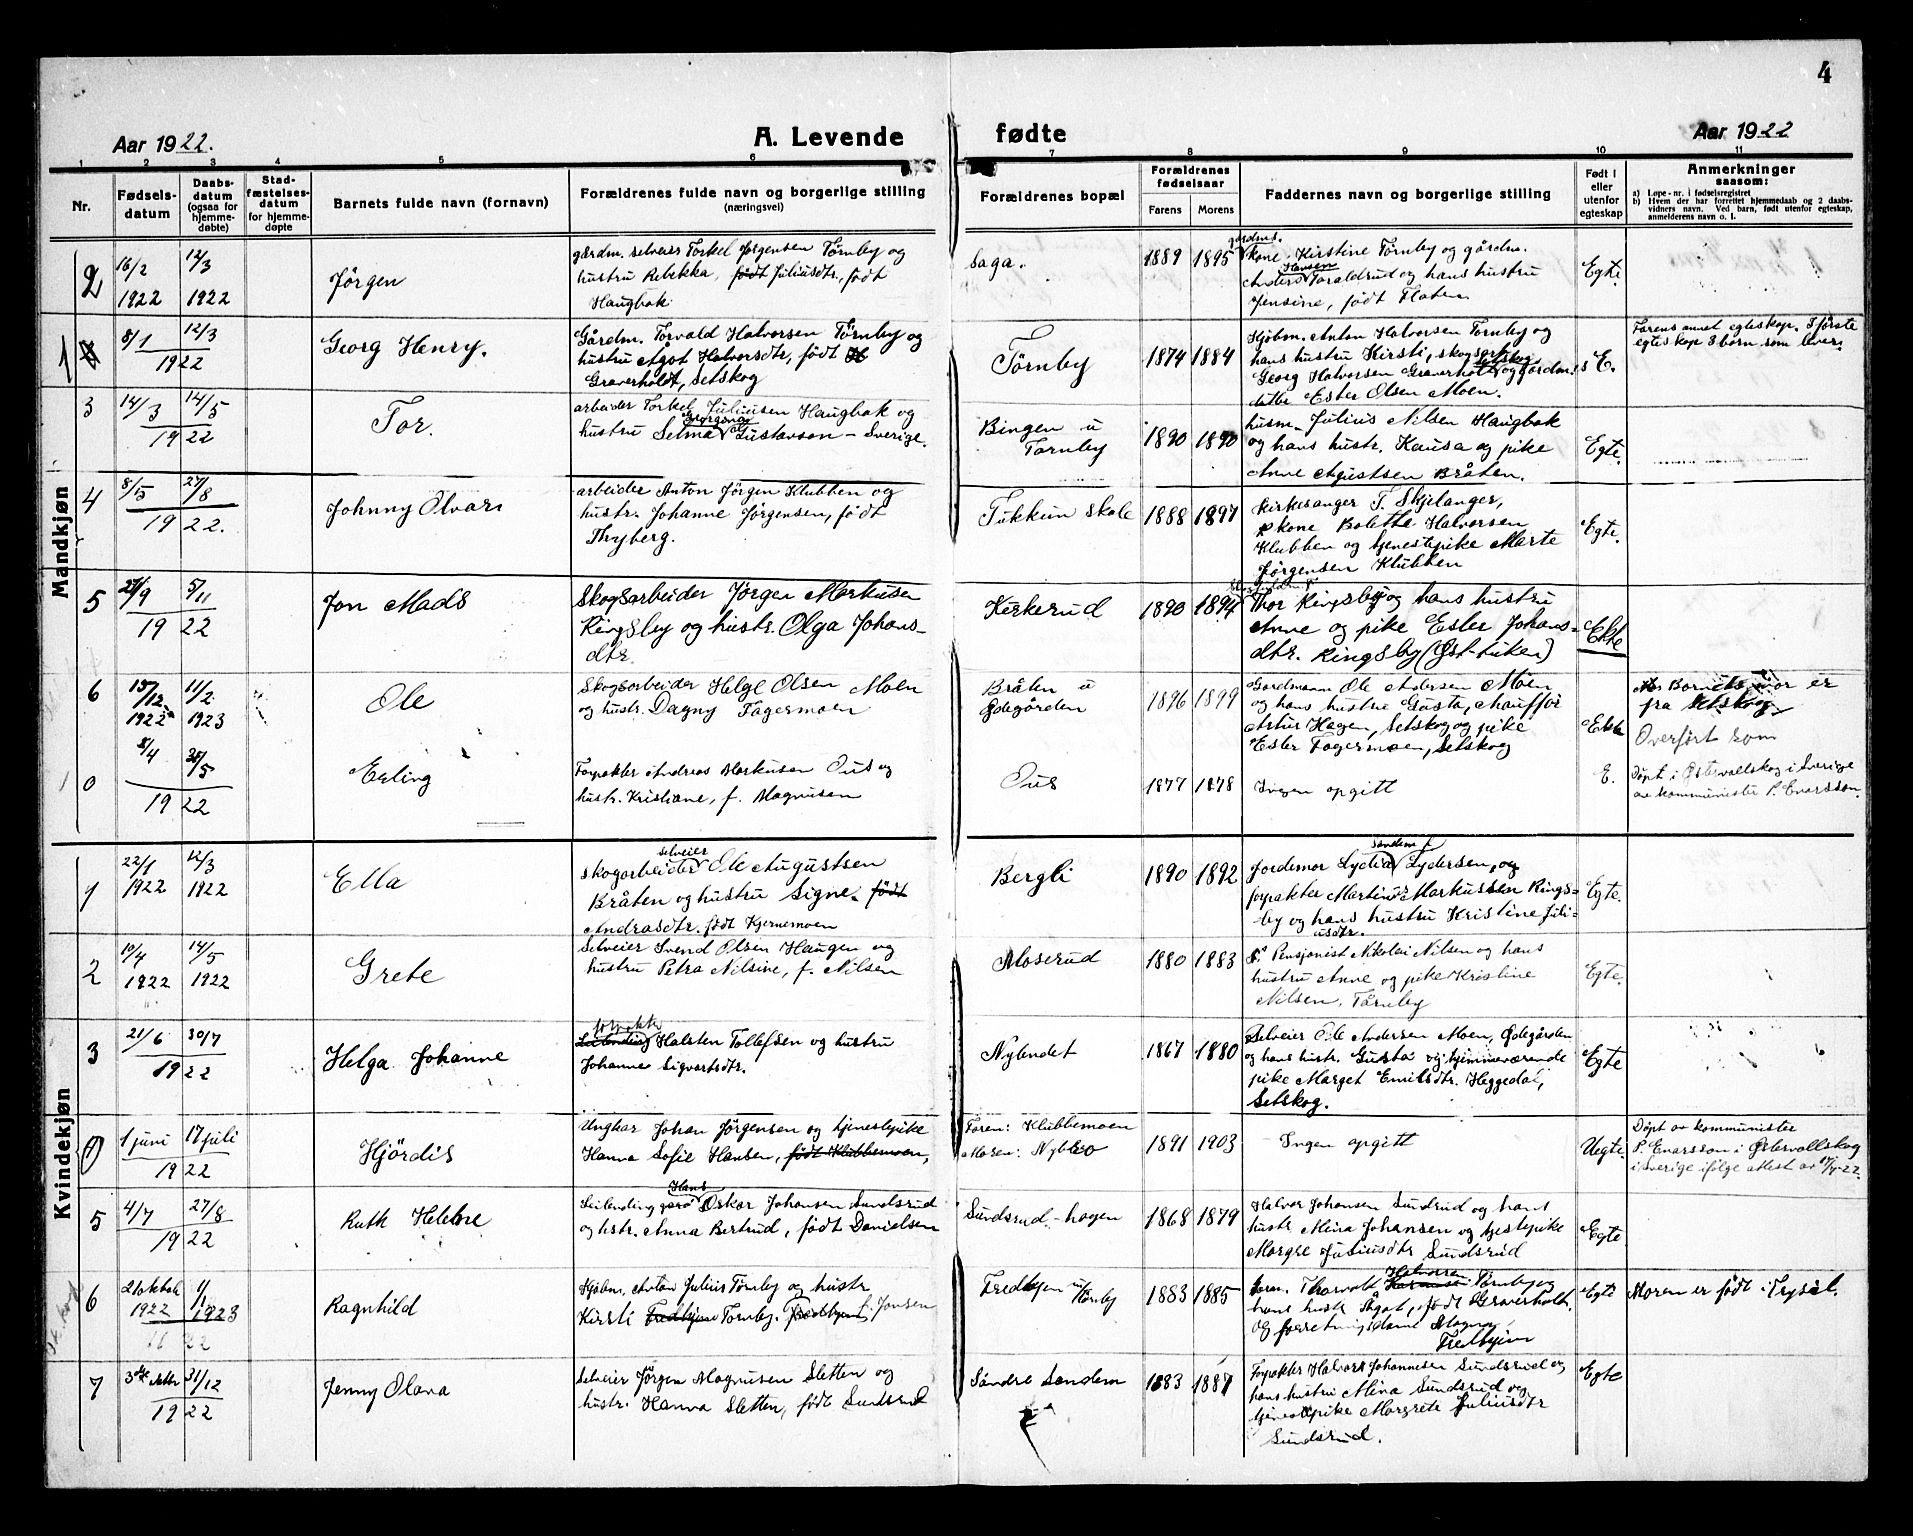 4
Aar 1922.
A. Levende
fødte
Aar 1922
1 2 3 4 5 6 7 8 9 10 11
Nr.
Fødsels-
datum
Daabs-
datum
(ogsaa for
hjemme-
døbte)
Stad-
fæstelses-
datum
for hjemme-
døpte
Barnets fulde navn (fornavn)
Forældrenes fulde navn og borgerlige stilling
(næringsvei)
Forældrenes bopæl
Forældrenes
fødselsaar
Farens
Morens
Faddernes navn og borgerlige stilling
Født i
eller
utenfor
egteskap
Anmerkninger
saasom:
a) Løpe-nr. i fødselsregistret
b) Hvem der har forrettet hjemmedaab og 2 daabs-
vidners navn. Ved barn, født utenfor egteskap,
anmelderens navn o. l.
Mandkjøn
2
16/2
1922
12/3
1922
Jørgen
gårdm. selveier Torkel Jørgensen Tørnby og
hustru Rebekka, født Juliusdtr., født
Haugbak
Saga.
1889 1895
gårdms.
kone Kirstine Tørnby og gårdm.
Anders Hansen Toraldrud og hans hustru
Jensine, født Floten
Egte.
1
8/1
12/3
1922
Georg Henry.
Gårdm. Torvald Halvorsen Tørnby og
hustru Ågot Halvorsdtr, født
Graverholdt, Setskog
Tørnby
1874 1884
Hjøbm. Anton Halvorsen Tørnby og
hans hustru Kirsti, skogsarb.
Georg Halvorsen Graverholt Setskog og gårdm.s
datte Ester Olsen Moen.
E.
Farens annet egteskap. I første
egteskap 3 børn som lever.
3
14/3
14/5
1922
Tor.
arbeider Torkel Juliusen Haugbak og
hustru Selma Georgina Gustavson - Sverige.
Bingen u
Tørnby
1890 1890
husm. Julius Nilsen Haugbak
og hans hustr. Kausa og pike
Anne Agustsen Bråten.
Egte.
4
8/5
27/8
1922.
Johnny Olvar
arbeider Anton Jörgen Klubben og
hustr. Johanne Jørgensen, født
Thyberg.
Tukkun skole
1888 1897
Kirkesanger T. Skjelanger,
kone Bolette Halvorsen
Klubben og tjenestepike Marte
Jørgensen Klubben
Egte.
5
27/9
5/11
1922
Jon Mads
Skogsarbeider Jørgen Markusen
Ringsby og hustr. Olga Johans-
dtr.
Kirkerud
1890 1894
Thor Ringsby og hans hustru
Anne og pike Ester Johans-
dtr. Ringsby (Øst-tuken)
Ekte
6
15/12
1922
11/2
1923
Ole
Skogsarbeider Helge Olsen Moen
og hustr. Dagny Fagermoen
Bråten u
Ødegården
1896 1899
Gårdmann Ole Andersen Moen
og hans hustru Gusta, chauffør
Artur Hagen, Setskog og pike
Ester Fagermoen, Setskog
Ekte
Barnets mor er
fra Setskog
Overført som
0
5/4
28/5
1922
Erling
Forpakter Andreas Markusen Ous og
hustr. Kristiane, f. Magnusen
Ous
1877 1878
Ingen opgitt
E.
Döpt i Østervallskog i Sverige
av kommunister P. Enarsson.
Kvindekjøn
1
22/1
1922
12/3
1922
Ella
selveier
skogarbeider Ole Augustsen
Bråten og hustru Signe født
Andrasdtr. født Kjernemoen
Bergli
1890 1892
Jordemor Lydia Sandem f. Lydersen, og
forpakter Martinus Markussen Rings-
by og hans hustru Kristine Juli-
usdtr.
Egte.
2
10/4
1922
14/5
1922
Grete
Selveier Svend Olsen Haugen og
hustru Petra Nilsine, f. Nilsen
Moserud
1880 1883
Pensjonist Nikolai Nilsen og hans
hustru Anne og pike Kristine
Nilsen, Tørnby
Egte.
3
21/6
30/7
1922
Helga Johanne
forpakter
Leilending Halsten Tollefsen og hustru
Johanne Sigvartsdtr.
Nylendet
1867 1880
Selveier Ole Andersen Moen, Ødegården
og hans hustr. Gusta og hjemmeværende
pike Marget Emilsdtr. Heggedal,
Setskog.
Egte
1 juni
17 juli
1922
Hjördis
Ungkar Johan Jørgensen og tjenestepike
Hanna Sofie Hansen, født Klubbemoen,
Faren: Klubbemoen
Moren: Nybro
1891 1903
Ingen opgitt
Uegte.
Döpt av kommunister
P. Enarsson i Østervallskog
i Sverige ifølge attest av 17/7-22.
5
4/7
27/8
1922
Ruth Helene
Leilending Hans Oskar Johansen Sundsrud
og hstr. Anna Bertrud, født Danielsen
Sundsrud-hagen
1868 1879
Halvor Johansen Sundsrud og hans
hustr Mina Johansen og tjestepike
Margre Juliusdtr Sundsrud
Egte
6
21 oktob
1922
1/1
1923
Ragnhild
Hjøbm. Anton Julius Tørnby og hustr
Kirsti Fredhjem Tørnby. f. Jonsen
Fredhjem u/ Tørnby
1883 1885
Thorvald Halvorsen Tørnby og
hans hustr Ågot, født Graverholdt,
og forretningsdame Magna
Fredhjem
Egte
Moren er født i Trysil.
7
31/12
1922
Jenny Olava
Selveier Jörgen Magnusen Sletten og
hustr. Hanna Sletten, født Sundsrud
Søndre Sandem
1883 1887
Forpakter Halvor Johannesen Sundsrud og
hans hustru Mina Sundsrud og
tjenestepike Margrete Juliusdtr
Sundsrud.
Egte